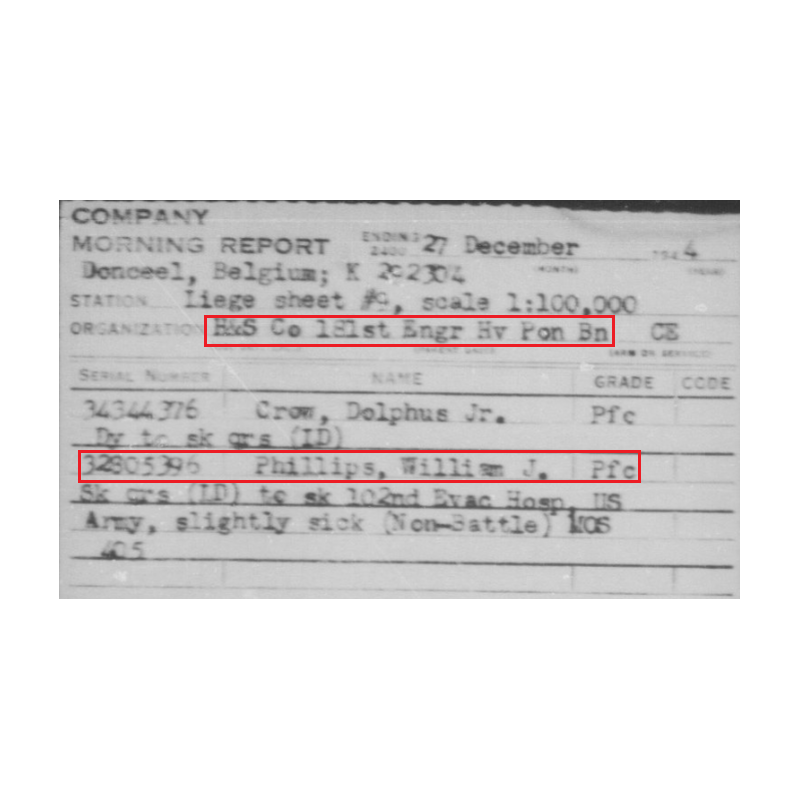 COMPANY
MORNING REPORT ENDING 2400 27 December 194 4
Donceel, Belgium; K 292304
STATION Liege sheet #9, scale 1:100,000
ORGANIZATION H&S Co 181st Engr Hv Pon Bn CE
SERIAL NUMBER NAME GRADE CODE
34344376 Crow, Dolphus Jr. Pfc
Dy to sk qrs (LD)
32805396 Phillips, William J. Pfc
Sk qrs (LD) to sk 102nd Evac Hosp, US
Army, slightly sick (Non-Battle) MOS
405